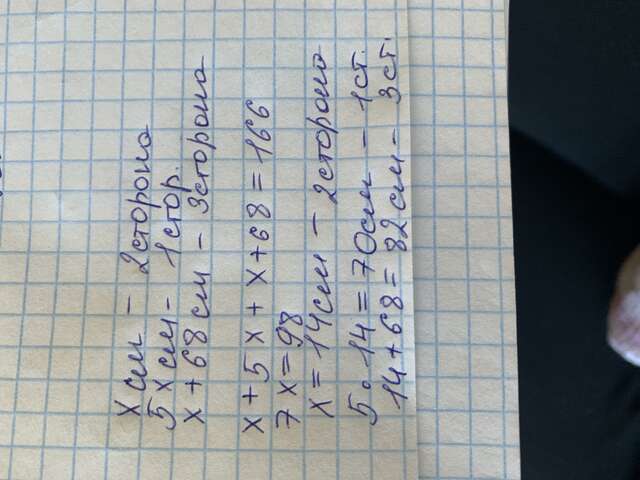 x см - 2сторона
5x см - 1стор.
x + 68 см - 3сторона
x + 5x + x + 68 = 166
7x = 98
x = 14см - 2сторона
5 · 14 = 70см - 1ст.
14 + 68 = 82см - 3ст.